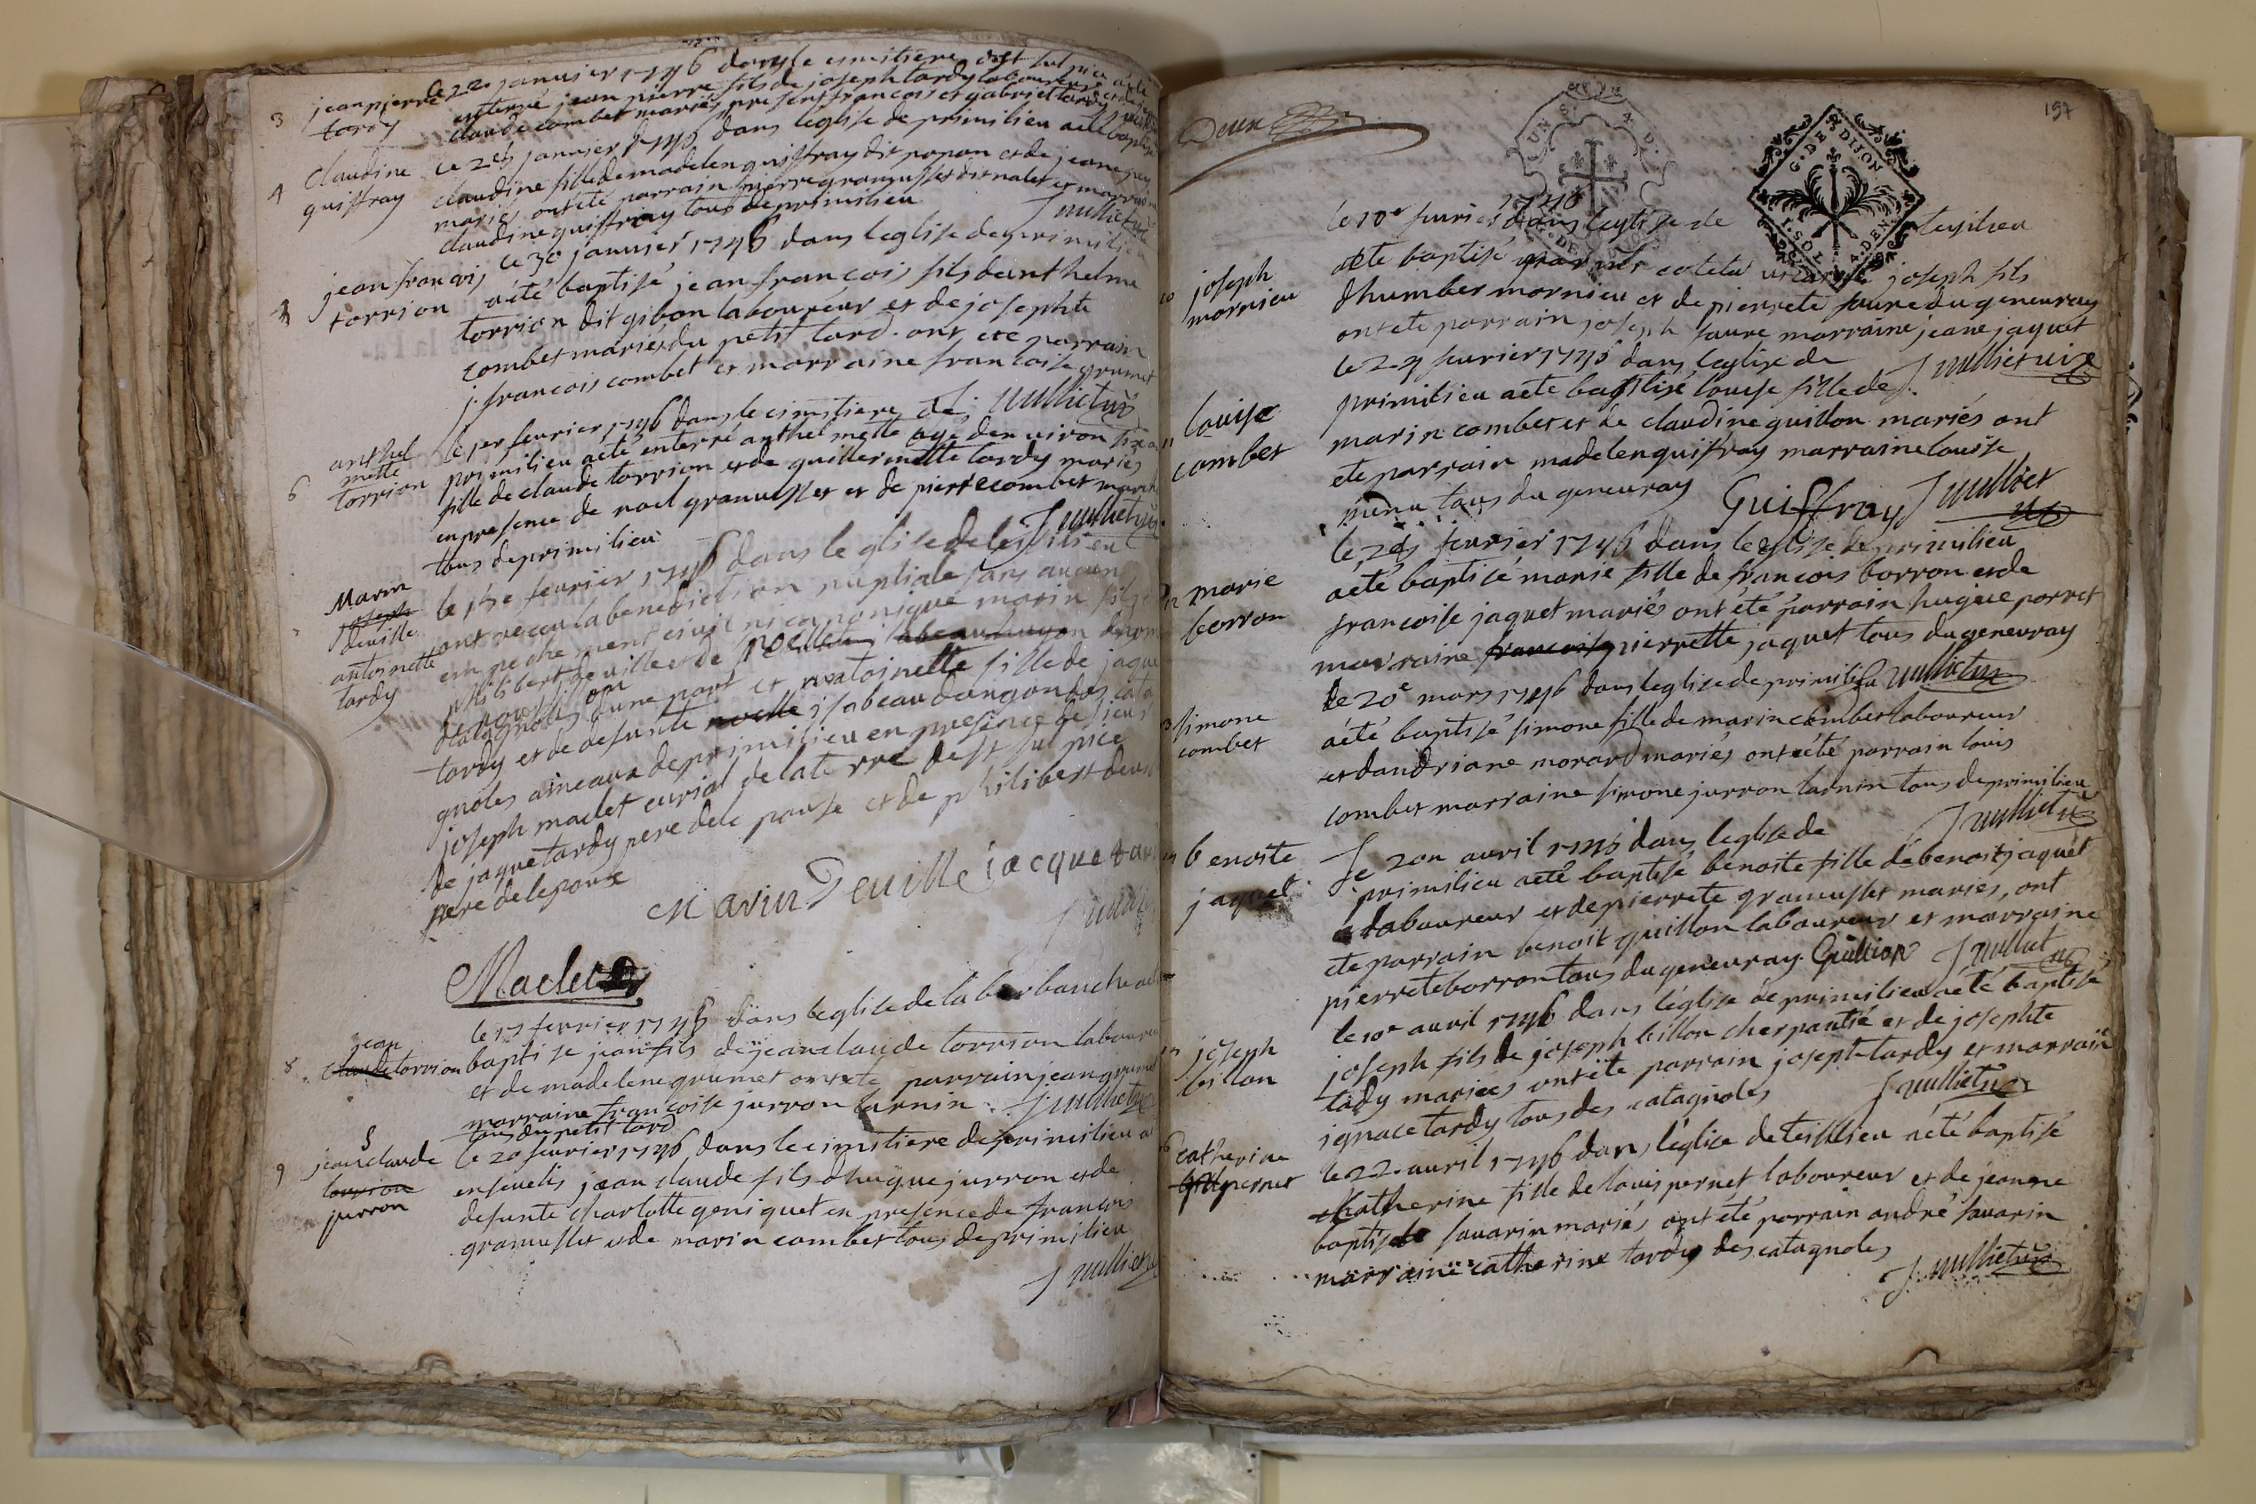 3 jean pierre tardy
le 22e janvier 1746 dans le cimitiere de st sulpice a été
enterré jean pierre fils de joseph tardy laboureur et de
claude combet mariés presens francois et gabriel tardy
4 Claudine guiffray
le 24 janvier 1746 dans leglise de primilieu a eté baptisé
claudine fille de madelen guiffray dit popon et de jeane
mariés ont été parrain pierre gramusset dit nalet et marraine
claudine guiffray tous de primilieu
Jmilliet
jean francois torrion
le 30 janvier 1746 dans leglise de primilieu
a été baptisé jean francois fils danthelme
torrion dit gibon laboureur et de josephte
combet mariés du petit tard. ont ete parrain
j. francois combet et marraine francoise grumet
6 anthelmette torrion
le 1er fevrier 1746 dans le cimitiere de
primilieu a eté enterré anthelmette agé denviron six
fille de claude torrion et de guillermette tardy mariés
en presence de noel gramusset et de pierre combet
tous de primilieu
Marin joseph deville antoinette tardy
le 15e fevrier 1746 dans le glise de lesilieu
ont receu la benediction nuptiale sans aucun
empechement civil ni canonique marin fils
philibert deville et de
catagnoles dune part et antoinette fille de jaque
tardy et de defunte noelle isabeau dangon des cata
gnoles aineaux de primilieu en presence de sieur
joseph maclet curial de la terre de st sulpice
de jaque tardy pere de le pouse et de philibert deville
pere de lepoux
Marin Deville jacque tar
Maclet
8 jean claude torrion
le 17 fevrier 1746 dans leglise de la burbanche a été
baptise jean fils de jean claude torrion laboureur
et de madelene grumet ont ete parrain jean grumet
marraine francoise jurron tarnin
tous du petit tard
9 jean claude torrion jurron
le 20 fevrier 1746 dans le cimitiere de primilieu a été
enseuelis jean claude fils dhugue jurron et de
defunte charlotte geniquet en presence de francois
gramusset et de marin combet tous de primilieu
157
Deux
G. DE DIJON
le 10e fevrier 1746 dans leglise de tesilieu
a ete baptisé joseph fils
dhumber mornieu et de pierrete faure du geneuray
ont eté parrain joseph faure marraine jeane jaquet
10 joseph mornieu
le 24 fevrier 1746 dans leglise de
primilieu a eté baptisé louise fille de
marin combet et de claudine guillon mariés ont
ete parrain madelen guiffray marraine louise
tous du geneuray
11 louise combet
Guiffray Jmilliet
12 marie borron
le 24 fevrier 1746 dans leglise de primilieu
a eté baptisé marie fille de francois borron et de
francoise jaquet mariés ont été parrain hugue porret
marraine francoise pierrette jaquet tous du geneuray
13 simone combet
le 20e mars 1746 dans leglise de primilieu
a été baptisé simone fille de marin combet laboureur
et dandriane morard mariés ont été parrain louis
combet marraine simone jurron tarnin tous de primilieu
14 benoite jaquet
le 2on avril 1746 dans leglise de
primilieu a eté baptisé benoite fille de benoit jaquet
laboureur et de pierrete gramusset mariés, ont
ete parrain benoit guillon laboureur et marraine
pierrete borron tous du geneuray Guillion
15 joseph billon
le 10e avril 1746 dans léglise de primilieu a été baptisé
joseph fils de joseph billon cherpantié et de josephte
tady mariées ont été parrain joseph tardy et marraine
ignace tardy tous des catagnoles
16 catherine pernet
le 22 avril 1746 dans léglice de tesillieu a été baptisé
catherine fille de louis pernet laboureur et de jeanne
baptiste savarin mariés ont été parrain andré savarin
marraine catherine tardy des catagnoles